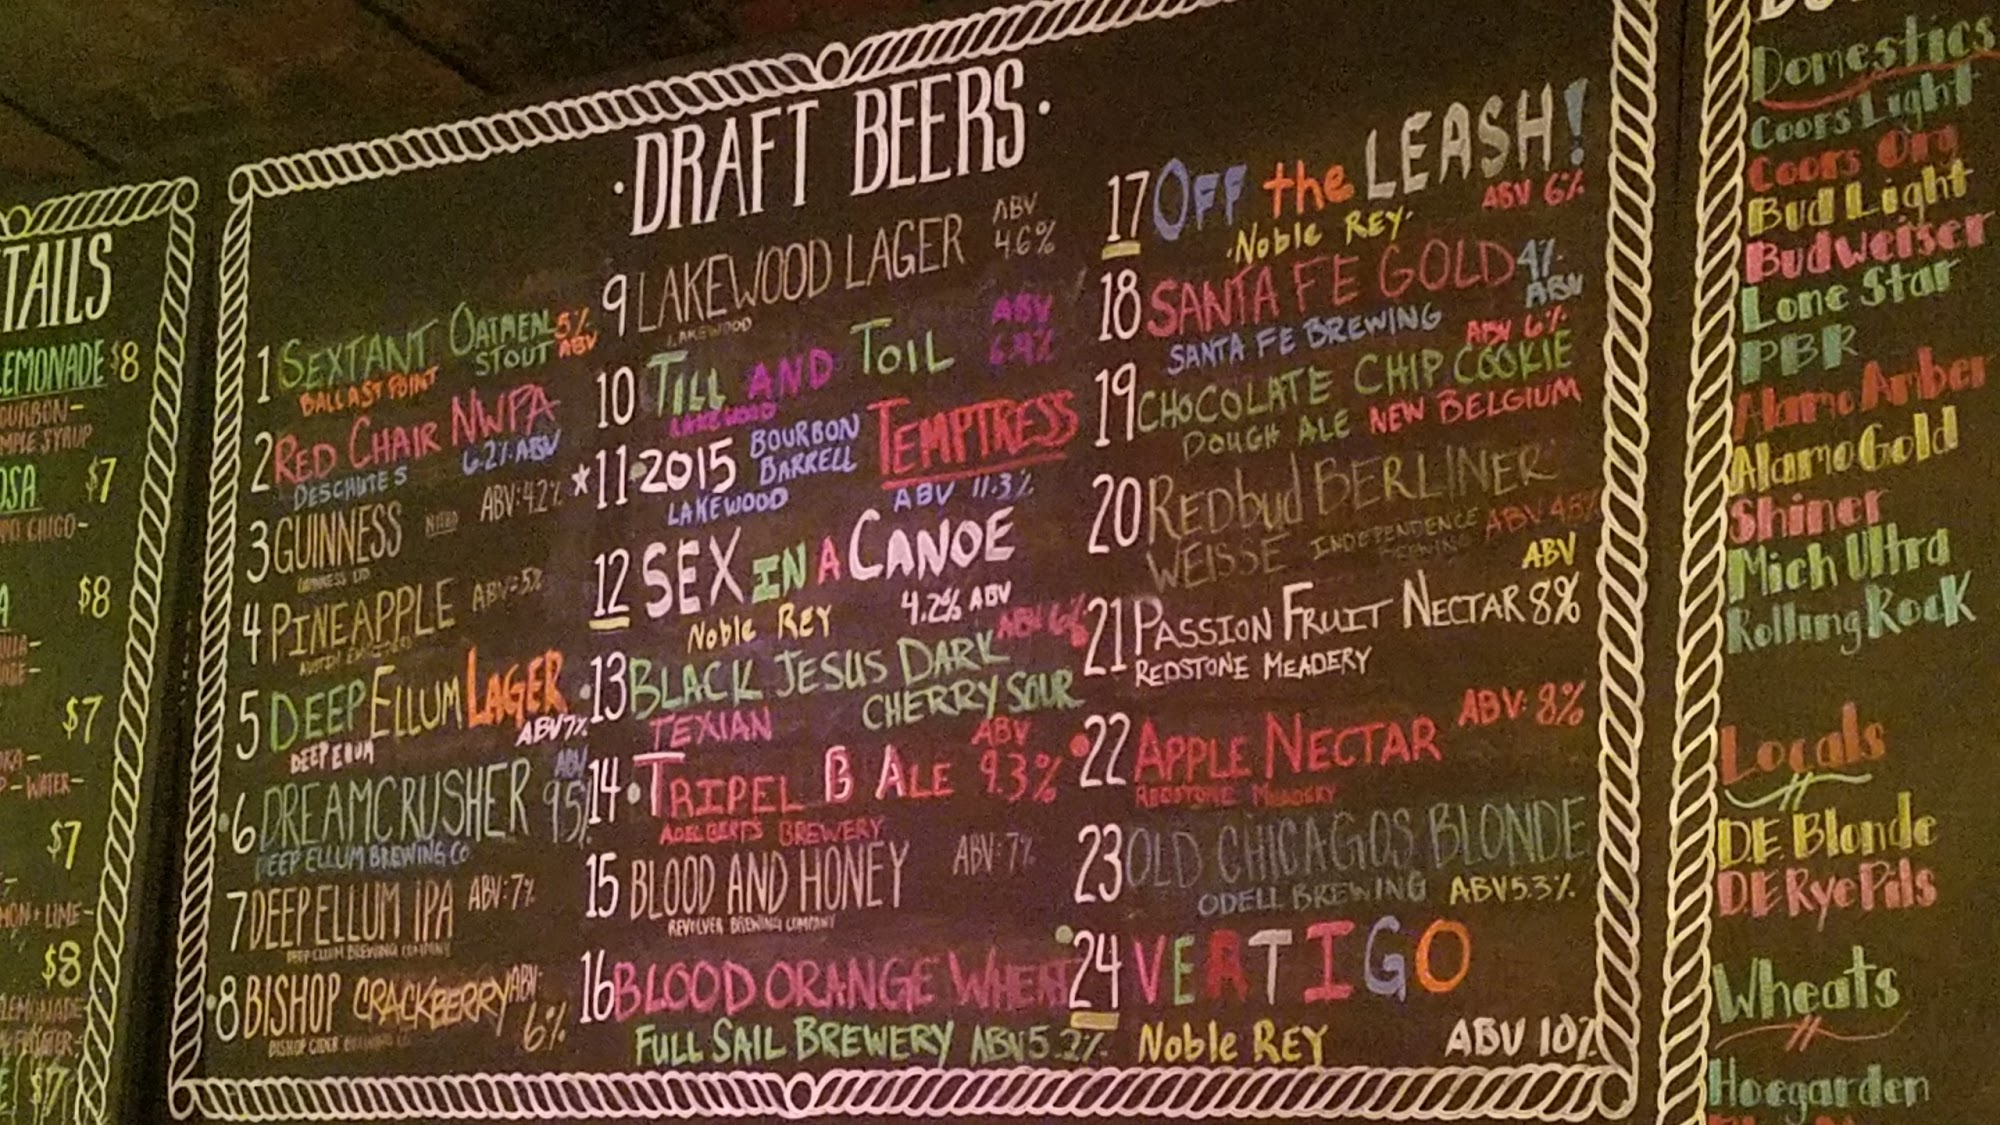 TAILS
LEMONADE $8
OURBON-
MPLE SYRUP
OSA $7
$8
$7
P-WATER-
$7
MON + LIME-
$8
LEMONADE
$7
·DRAFT BEERS·
1 SEXTANT OATMEAL 5%
STOUT ABV
BALLAST POINT
2 RED CHAIR NWPA
DESCHUTES 6.2% ABV
3 GUINNESS ABV: 4.2%
4 PINEAPPLE ABV: 5%
5 DEEP ELLUM LAGER
DEEP ELLUM ABV 7%
·6 DREAMCRUSHER ABV 9.5%
DEEP ELLUM BREWING CO
7 DEEP ELLUM IPA ABV: 7%
DEEP ELLUM BREWING COMPANY
·8 BISHOP CRACKBERRY ABV: 6%
BISHOP CIDER BREWING CO.
9 LAKEWOOD LAGER ABV 4.6%
LAKEWOOD
10 TILL AND TOIL ABV
LAKEWOOD
*11·2015 BOURBON BARRELL TEMPTRESS
LAKEWOOD ABV 11.3%
12 SEX IN A CANOE
Noble REY 4.2% ABV
·13 BLACK JESUS DARK ABV 6%
CHERRY SOUR
TEXIAN
14·TRIPEL B ALE ABV 9.3%
ADELBERTS BREWERY
15 BLOOD AND HONEY ABV: 7%
REVOLVER BREWING COMPANY
16 BLOOD ORANGE WHEAT
FULL SAIL BREWERY ABV 5.2%
17 OFF the LEASH!
·Noble REY· ABV 6%
18 SANTA FE GOLD 4% ABV
SANTA FE BREWING
19 CHOCOLATE CHIP COOKIE ABV 6%
DOUGH ALE NEW BELGIUM
20 REDbud BERLINER
WEISSE INDEPENDENCE BREWING ABV
21 PASSION FRUIT NECTAR ABV 8%
REDSTONE MEADERY
·22 APPLE NECTAR ABV: 8%
REDSTONE MEADERY
23 OLD CHICAGOS BLONDE
ODELL BREWING ABV 5.3%
24 VERTIGO
Noble REY ABV 10%
Domestics
Coors Light
Coors Org
Bud Light
Budweiser
Lone Star
PBR
Alamo Amber
Alamo Gold
Shiner
Mich Ultra
Rolling Rock
Locals
D.E. Blonde
D.E Rye Pils
Wheats
Hoegarden